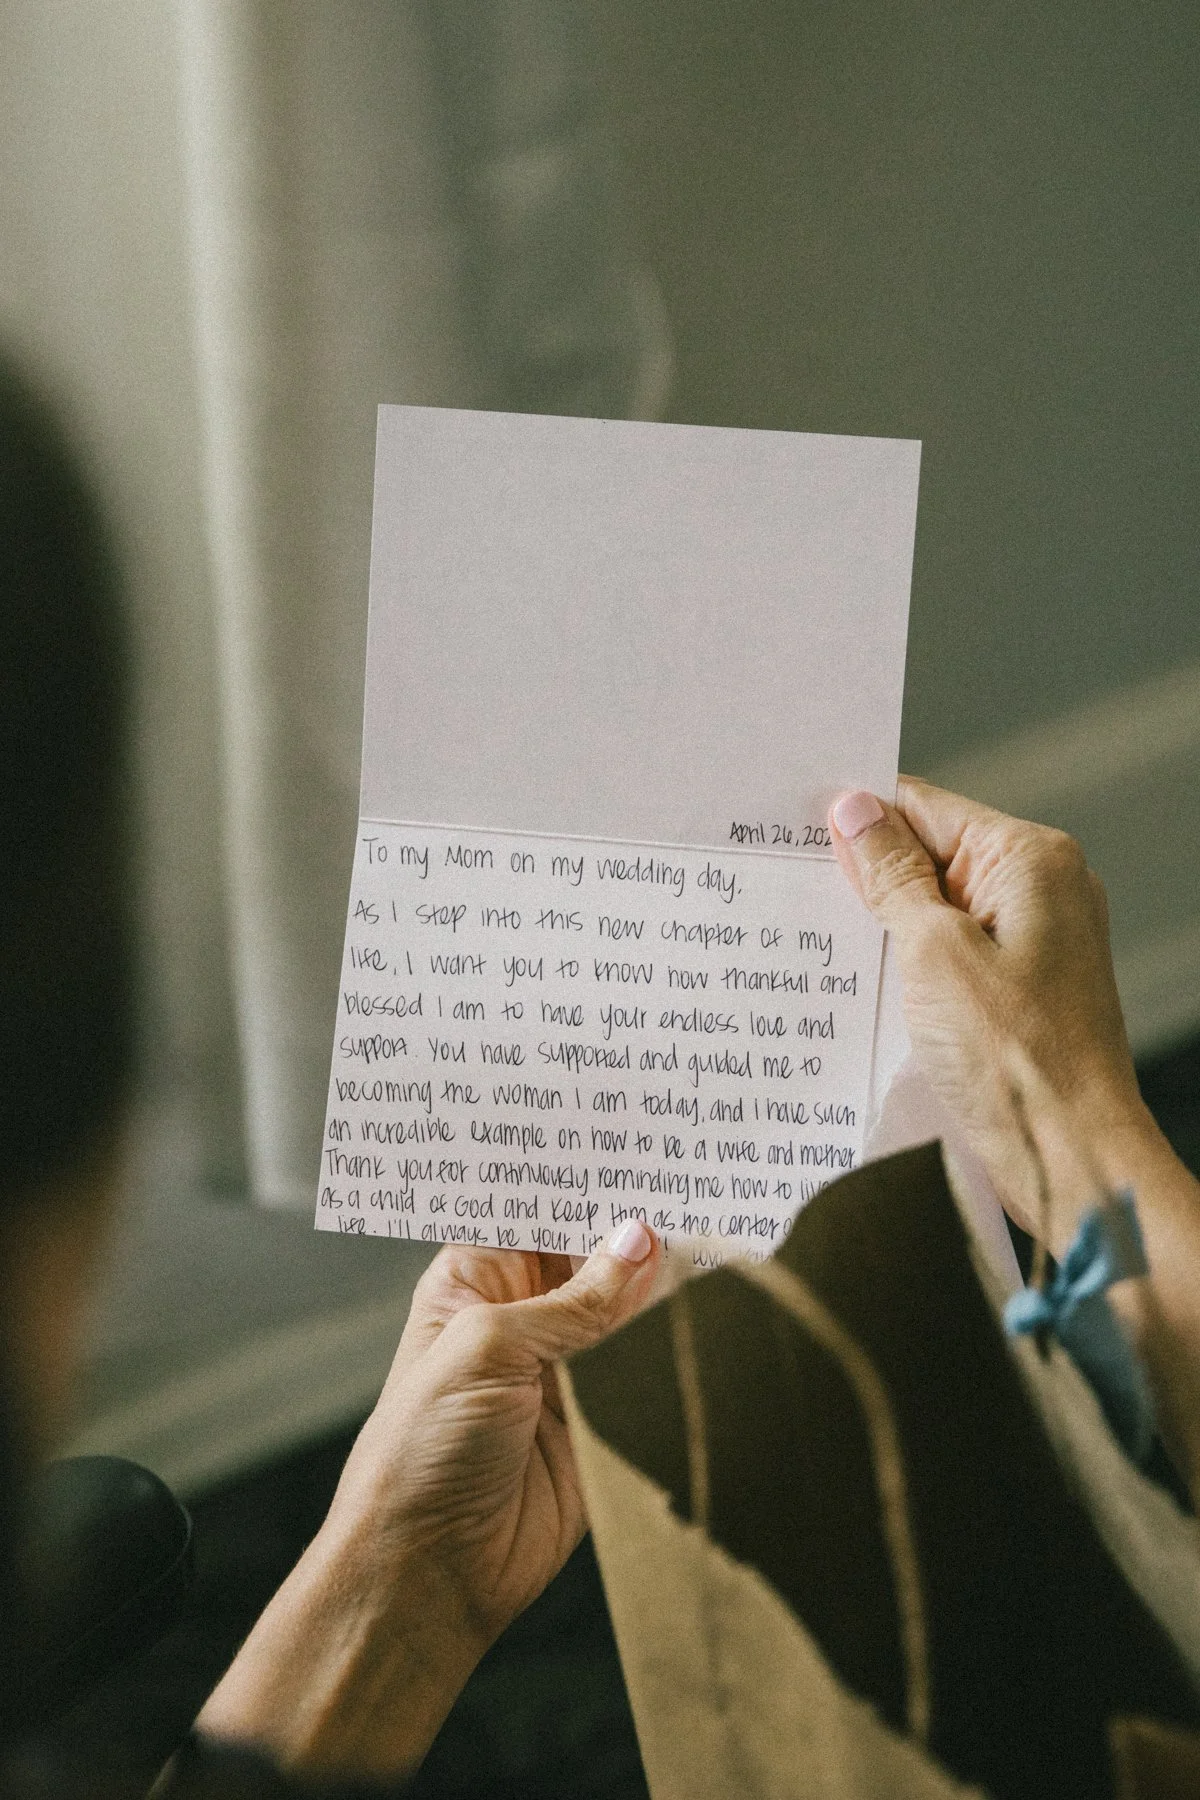 April 26, 202
To my Mom on my wedding day,
As I step into this new chapter of my
life, I want you to know how thankful and
blessed I am to have your endless love and
support. You have supported and guided me to
becoming the woman I am today, and I have such
an incredible example on how to be a wife and mother.
Thank you for continuously reminding me how to live
as a child of God and keep Him as the center
life. I'll always be your